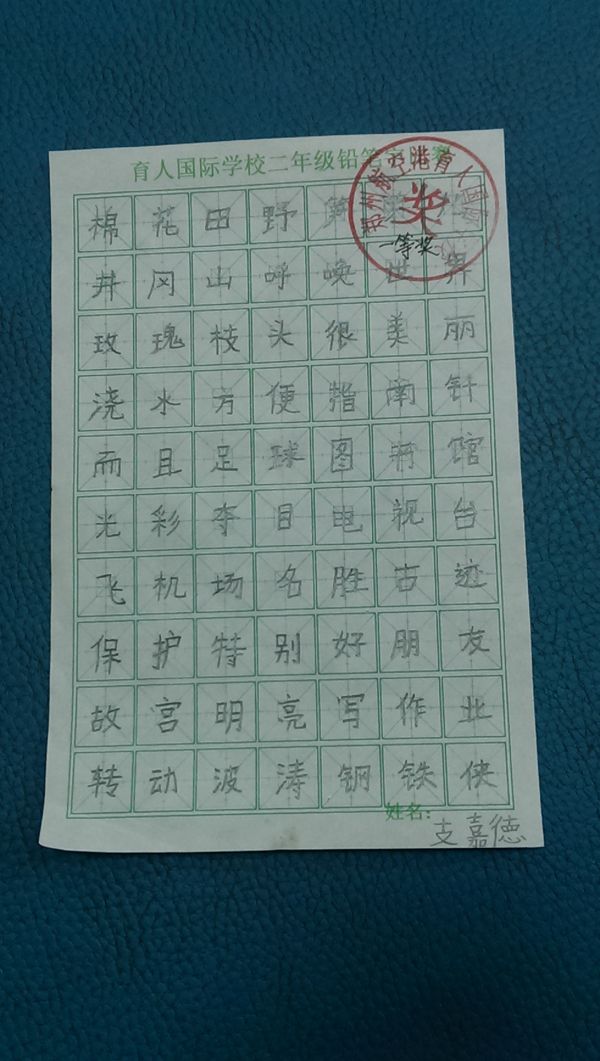 育人国际学校二年级铅笔字比赛
棉花田野
井冈山呼唤世界
一等奖
玫瑰枝头很美丽
浇水方便指南针
而且足球图书馆
光彩夺目电视台
飞机场名胜古迹
保护特别好朋友
故宫明亮写作业
转动波涛钢铁侠
姓名：
支嘉德